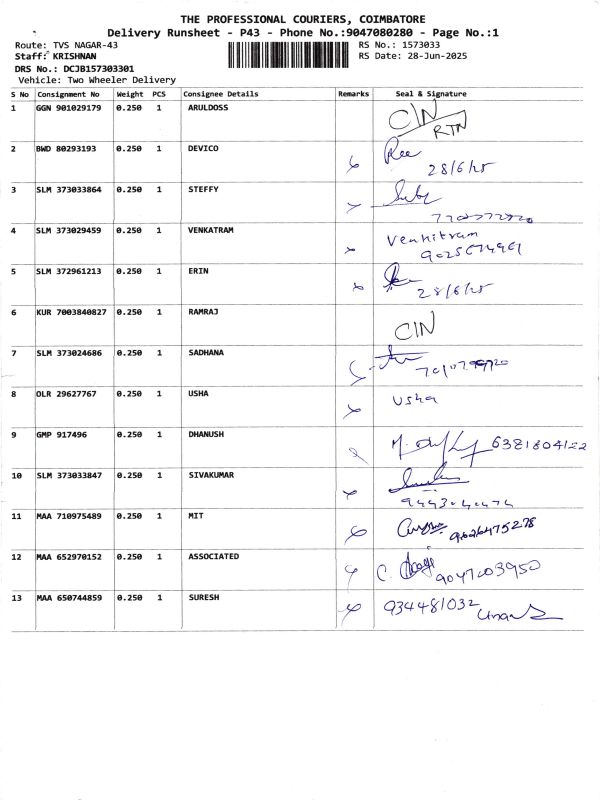 THE PROFESSIONAL COURIERS, COIMBATORE
Delivery Runsheet - P43 - Phone No.:9047080280 - Page No.:1
Route: TVS NAGAR-43 RS No.: 1573033
Staff: KRISHNAN RS Date: 28-Jun-2025
DRS No.: DCJB157303301
Vehicle: Two Wheeler Delivery
S No Consignment No Weight PCS Consignee Details Remarks Seal & Signature
1 GGN 901029179 0.250 1 ARULDOSS CIN
RTN
2 BWD 80293193 0.250 1 DEVICO
28/6/25
3 SLM 373033864 0.250 1 STEFFY
4 SLM 373029459 0.250 1 VENKATRAM Venkitram
5 SLM 372961213 0.250 1 ERIN
28/6/25
6 KUR 7003840827 0.250 1 RAMRAJ CIN
7 SLM 373024686 0.250 1 SADHANA
8 OLR 29627767 0.250 1 USHA Usha
9 GMP 917496 0.250 1 DHANUSH
10 SLM 373033847 0.250 1 SIVAKUMAR
11 MAA 710975489 0.250 1 MIT
12 MAA 652970152 0.250 1 ASSOCIATED
13 MAA 650744859 0.250 1 SURESH 934481032